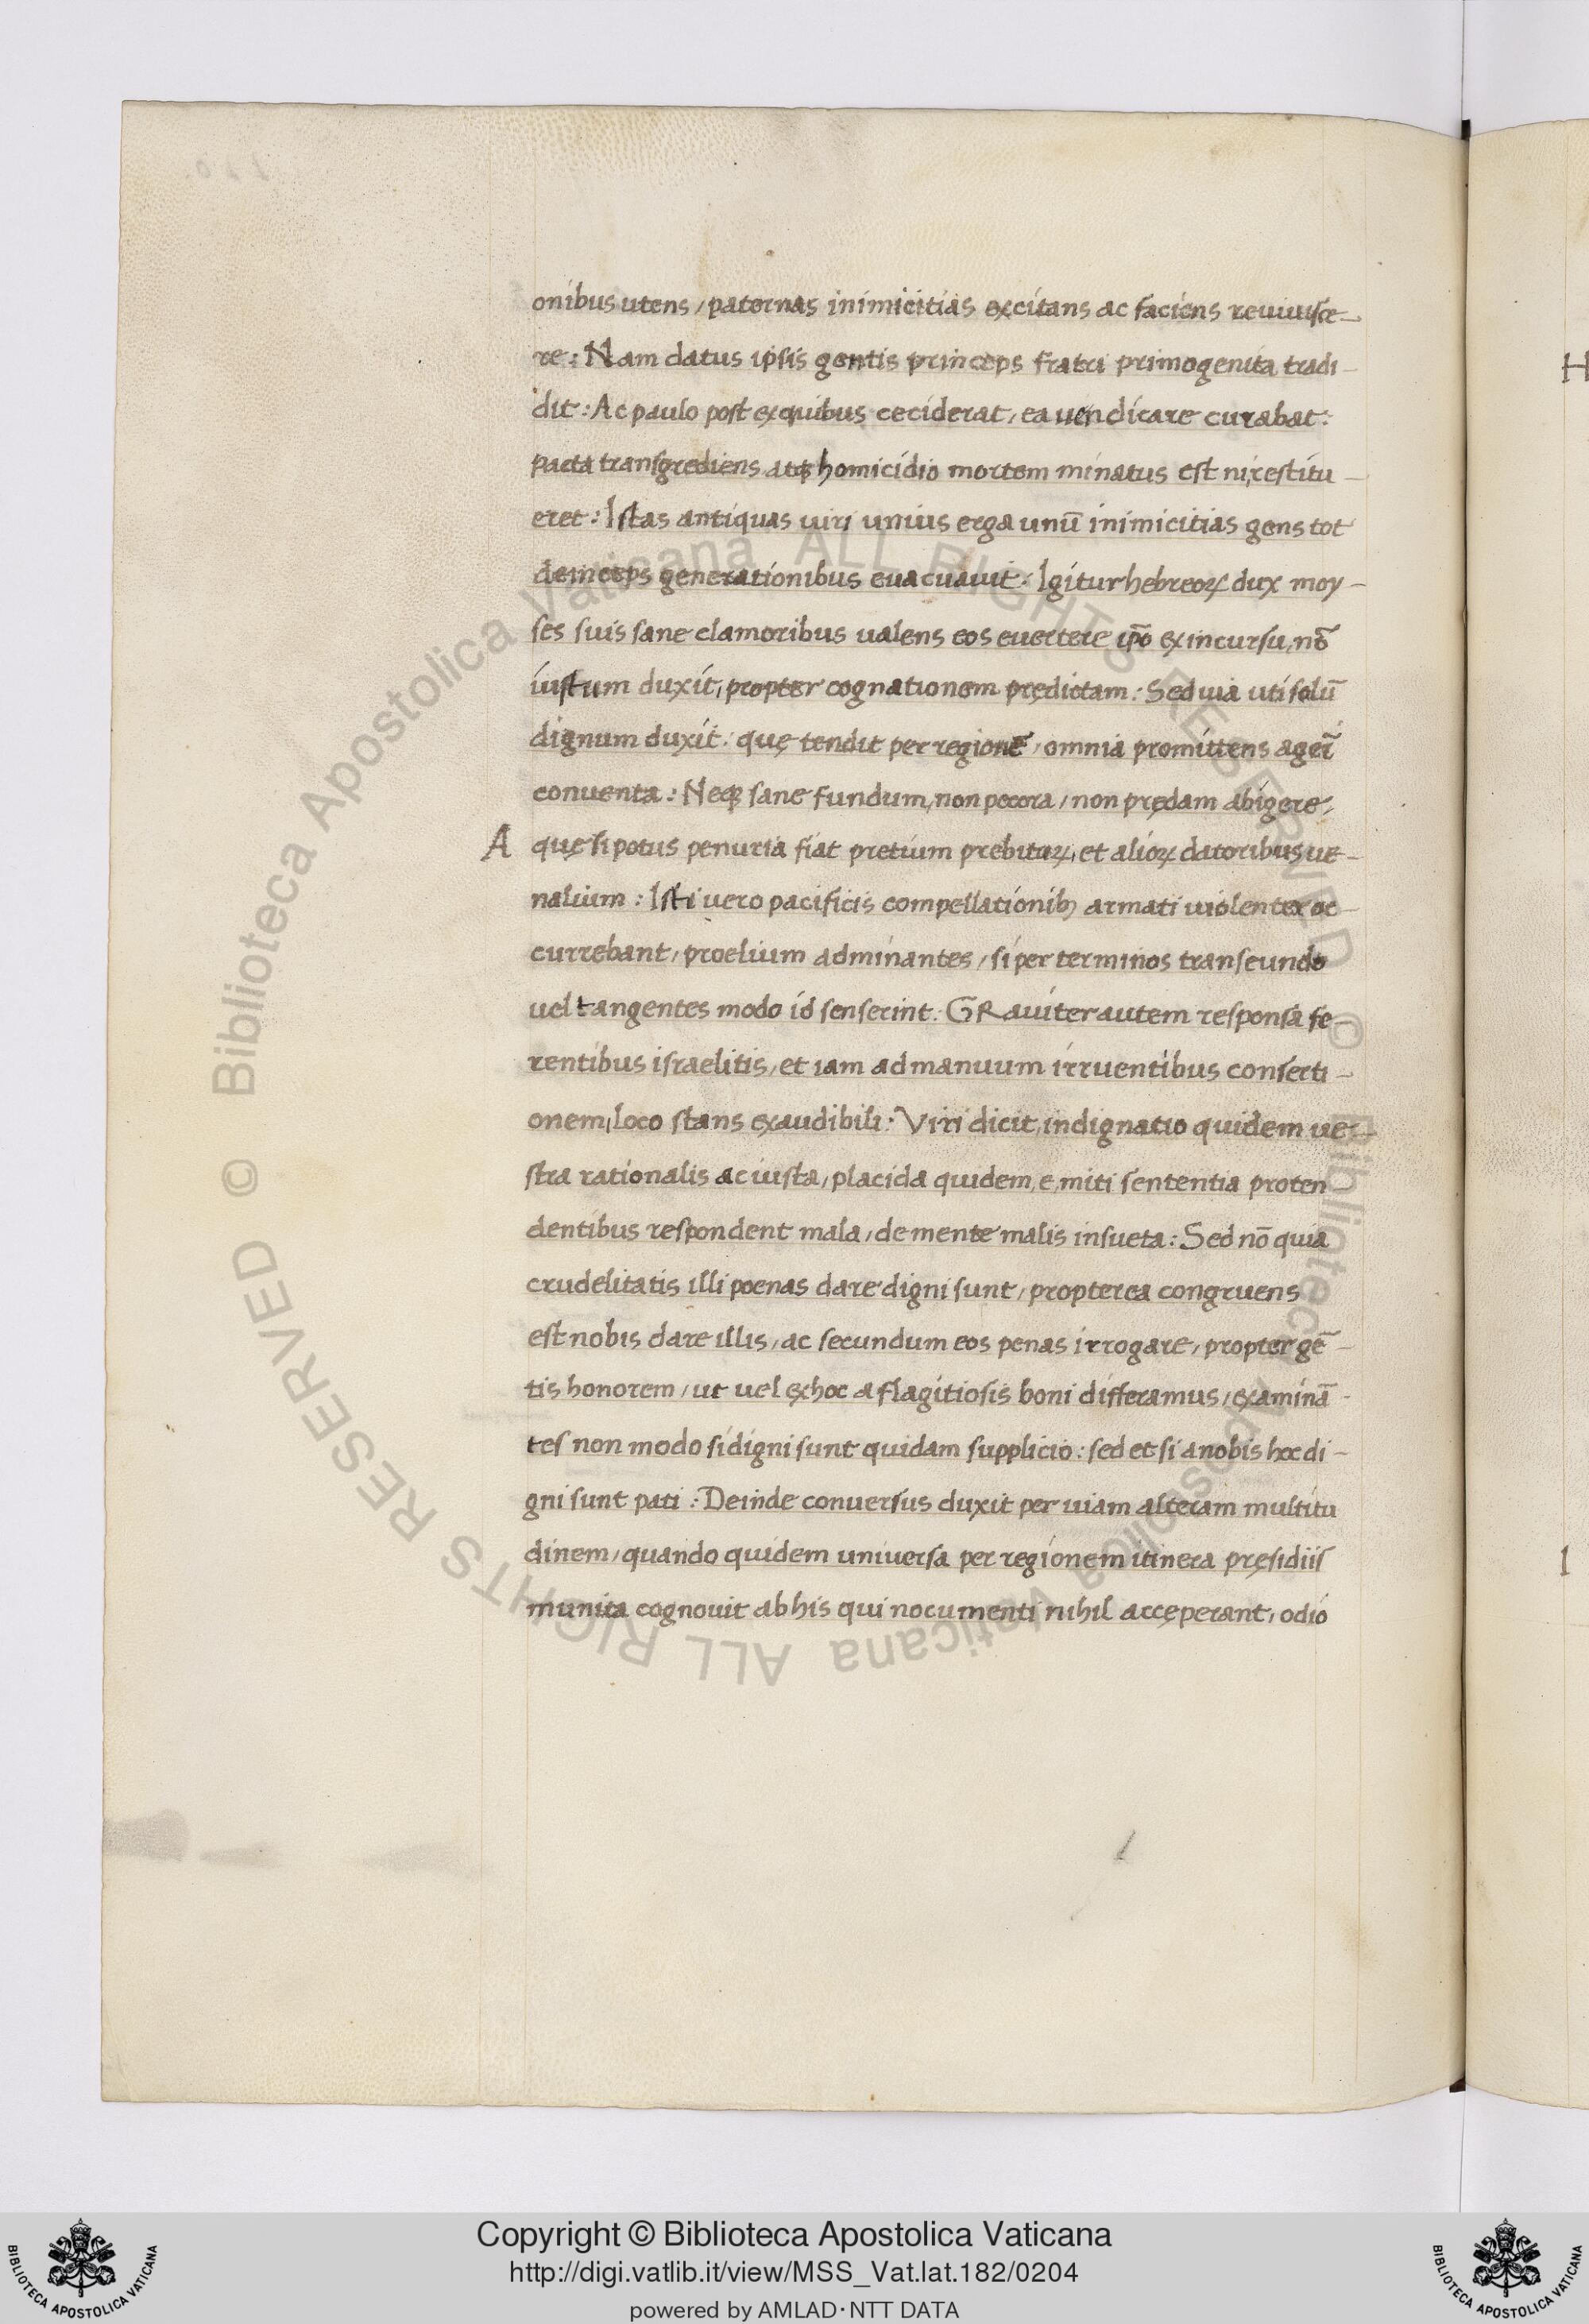 onibus utens, paternas inimicitias excitans ac faciens reuiuisce-
re: Nam datus ipsis gentis princeps fratri primogenita tradi-
dit: Ac paulo post ex quibus ceciderat, ea uendicare curabat:
pacta transgrediens atqꝫ homicidio mortem minatus est ni restitu-
eret: Istas antiquas uiri unius erga unū inimicitias gens tot
deinceps generationibus euacuauit: Igitur hebreoꝝ dux moy-
ses suis sane clamoribus ualens eos euertere ip̄o ex incursu, nō
iustum duxit, propter cognationem prędictam: Sed uia uti solū
dignum duxit: quę tendit per regionē, omnia promittens agerī
conuenta: Neqꝫ sane fundum, non pecora, non prędam abigere,
A quę si potus penuria fiat pretium prebituꝝ, et alioꝝ datoribus ue-
nalium: Isti uero pacificis compellationibꝫ armati uiolenter oc-
currebant, proelium adminantes, si per terminos transeundo
uel tangentes modo id senserint: GRauiter autem responsa fe-
rentibus israelitis, et iam ad manuum irruentibus conserti-
onem, loco stans exaudibili: Viri dicit, indignatio quidem ue-
stra rationalis ac iusta, placida quidem, e miti sententia proten
dentibus respondent mala, de mente malis insueta: Sed nō quia
crudelitatis illi poenas dare digni sunt, propterea congruens
est nobis dare illis, ac secundum eos penas irrogare, propter gē-
tis honorem, ut uel ex hoc a flagitiosis boni differamus, examinā-
tes non modo si digni sunt quidam supplicio: sed et si a nobis hoc di-
gni sunt pati: Deinde conuersus duxit per uiam alteram multitu
dinem, quando quidem uniuersa per regionem itinera pręsidiis
munita cognouit ab his qui nocumenti nihil accęperant, odio
H
I
Biblioteca Apostolica Vaticana ALL RIGHTS RESERVED ©
Biblioteca Apostolica Vaticana ALL RIGHTS RESERVED ©
Copyright © Biblioteca Apostolica Vaticana
http://digi.vatlib.it/view/MSS_Vat.lat.182/0204
powered by AMLAD·NTT DATA
BIBLIOTECA APOSTOLICA VATICANA
BIBLIOTECA APOSTOLICA VATICANA